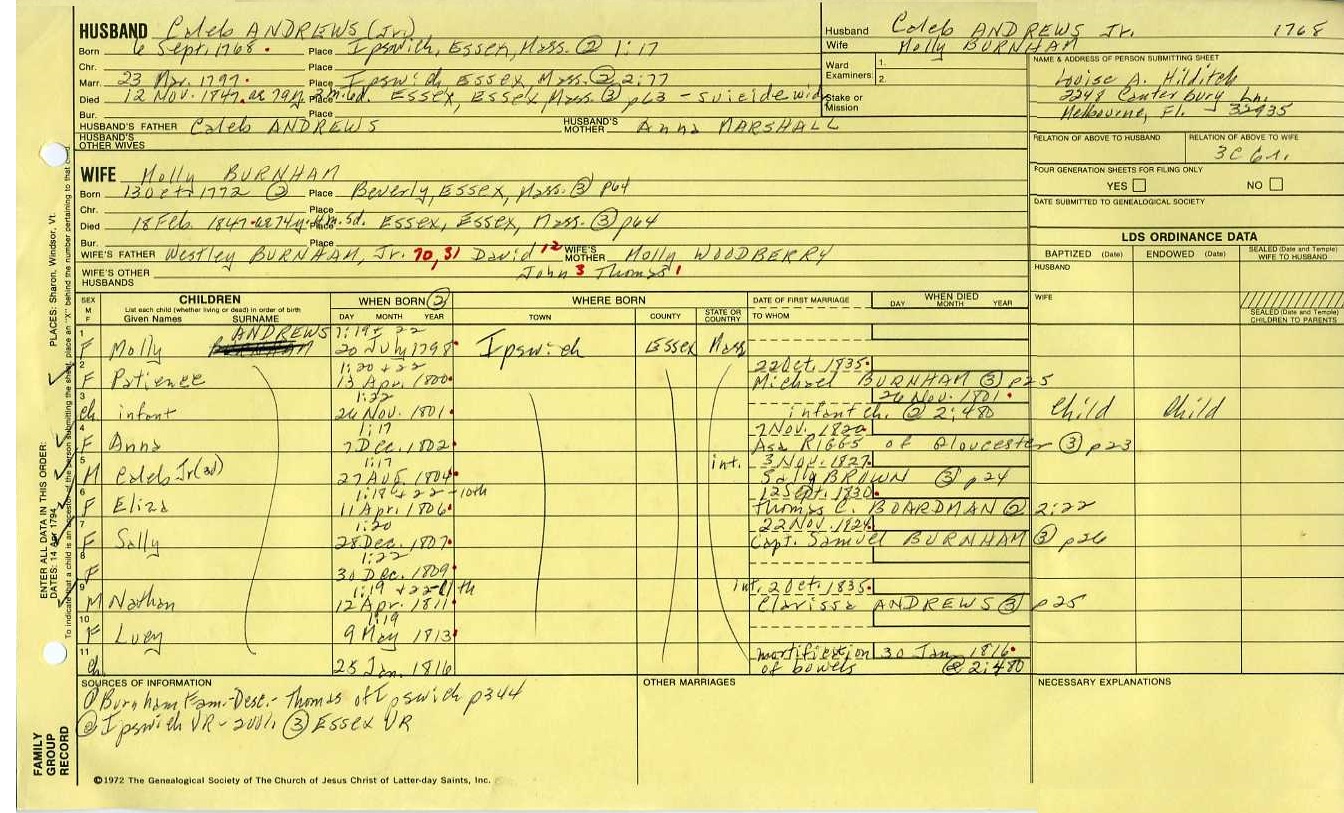 HUSBAND Caleb ANDREWS (Jr.)
Born 6 Sept. 1768 Place Ipswich, Essex, Mass. ② 1:17
Chr. Place
Marr. 23 Mar. 1797 Place Ipswich Essex, Mass. ② 2:77
Died 12 Nov. 1847 ae 79y. 2m. 6d. Place Essex, Essex Mass. ③ p63 - suicide wid.
Bur. Place
HUSBAND'S FATHER Caleb ANDREWS HUSBAND'S MOTHER Anna MARSHALL
HUSBAND'S OTHER WIVES
Husband Caleb ANDREWS Jr. 1768
Wife Molly BURNHAM
Ward Examiners: 1. 2.
Stake or Mission
NAME & ADDRESS OF PERSON SUBMITTING SHEET
Loise A. Hilditch
2248 Canterbury Ln.
Melbourne, Fl. 32935
RELATION OF ABOVE TO HUSBAND RELATION OF ABOVE TO WIFE
3C 6r.
FOUR GENERATION SHEETS FOR FILING ONLY
YES NO
DATE SUBMITTED TO GENEALOGICAL SOCIETY
WIFE Molly BURNHAM
Born 13 Oct. 1772 ② Place Beverly, Essex, Mass. ③ p64
Chr. Place
Died 18 Feb. 1847 ae 74y. 4m. 5d. Place Essex, Essex, Mass. ③ p64
Bur. Place
WIFE'S FATHER Westley BURNHAM, Jr. 70, 31 David 12 WIFE'S MOTHER Molly WOODBERRY
WIFE'S OTHER HUSBANDS John 3 Thomas 1
LDS ORDINANCE DATA
BAPTIZED (Date) ENDOWED (Date) SEALED (Date and Temple) WIFE TO HUSBAND
HUSBAND
WIFE
SEALED (Date and Temple) CHILDREN TO PARENTS
SEX M F CHILDREN WHEN BORN ② WHERE BORN DATE OF FIRST MARRIAGE WHEN DIED
List each child (whether living or dead) in order of birth
Given Names SURNAME DAY MONTH YEAR TOWN COUNTY STATE OR COUNTRY TO WHOM DAY MONTH YEAR
1 ANDREWS 1:19 + 22
F Molly 20 July 1798 Ipswich Essex Mass
2 1:20 + 22 22 Oct. 1835
F Patience 13 Apr. 1800 Michael BURNHAM ③ p25
3 1:22 26 Nov. 1801
ch infant 26 Nov. 1801 infant ch. ② 2:480 Child Child
4 1:17 7 Nov. 1820
F Anna 7 Dec. 1802 Asa RIGGS of Gloucester ③ p23
5 1:17 int. 3 Nov. 1827
M Caleb Jr (3d) 27 Aug. 1804 Sally BROWN ③ p24
6 1:18 + 22 - 10th 12 Sept. 1830
F Eliza 11 Apr. 1806 Thomas C. BOARDMAN ② 2:22
7 1:20 22 Nov. 1824
F Sally 28 Dec. 1807 Capt. Samuel BURNHAM ③ p26
8 1:22
F 30 Dec. 1809
9 1:19 + 22 - 11th int. 2 Oct. 1835
M Nathan 12 Apr. 1811 Clarissa ANDREWS ③ p25
10 1:19
F Lucy 9 May 1813
11 mortification 30 Jan. 1816
ch 25 Jan. 1816 of bowels ② 2:480
SOURCES OF INFORMATION
① Burnham Fam.-Desc.- Thomas of Ipswich p344
② Ipswich VR - ③ Essex VR
OTHER MARRIAGES
NECESSARY EXPLANATIONS
©1972 The Genealogical Society of The Church of Jesus Christ of Latter-day Saints, Inc.
FAMILY GROUP RECORD
ENTER ALL DATA IN THIS ORDER:
DATES: 14 Apr 1794
PLACES: Sharon, Windsor, Vt.
To indicate that a child is an ancestor of the person submitting the sheet, place an "X" behind the number pertaining to that child.